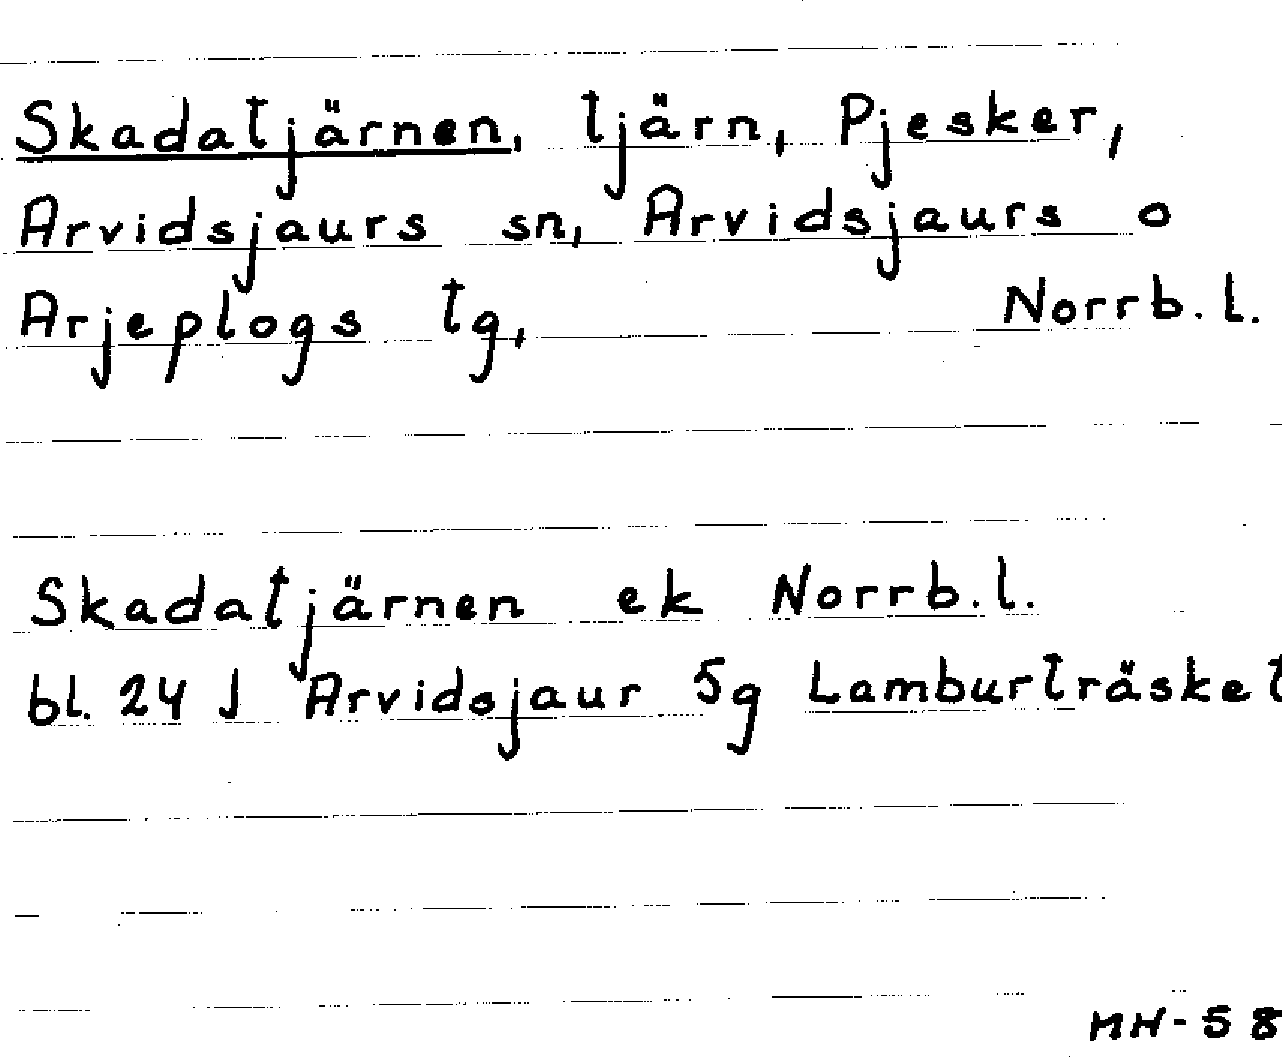 Skadatjärnen, tjärn, Pjesker,
Arvidsjaurs sn, Arvidsjaurs o
Arjeplogs tg, Norrb. l.
Skadatjärnen ek Norrb. l.
bl. 24 J Arvidsjaur 5g Lamburträsket
MH-58